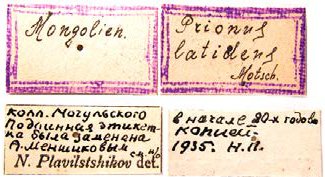 Mongolien.
Prionus
latidens
Motsch.
Колл. Мочульского
Подлинная этикет-
ка была заменена
А. Меншиковым
N. Plavilstshikov det.
в начале 20-х годов
копией
1935. Н.П.